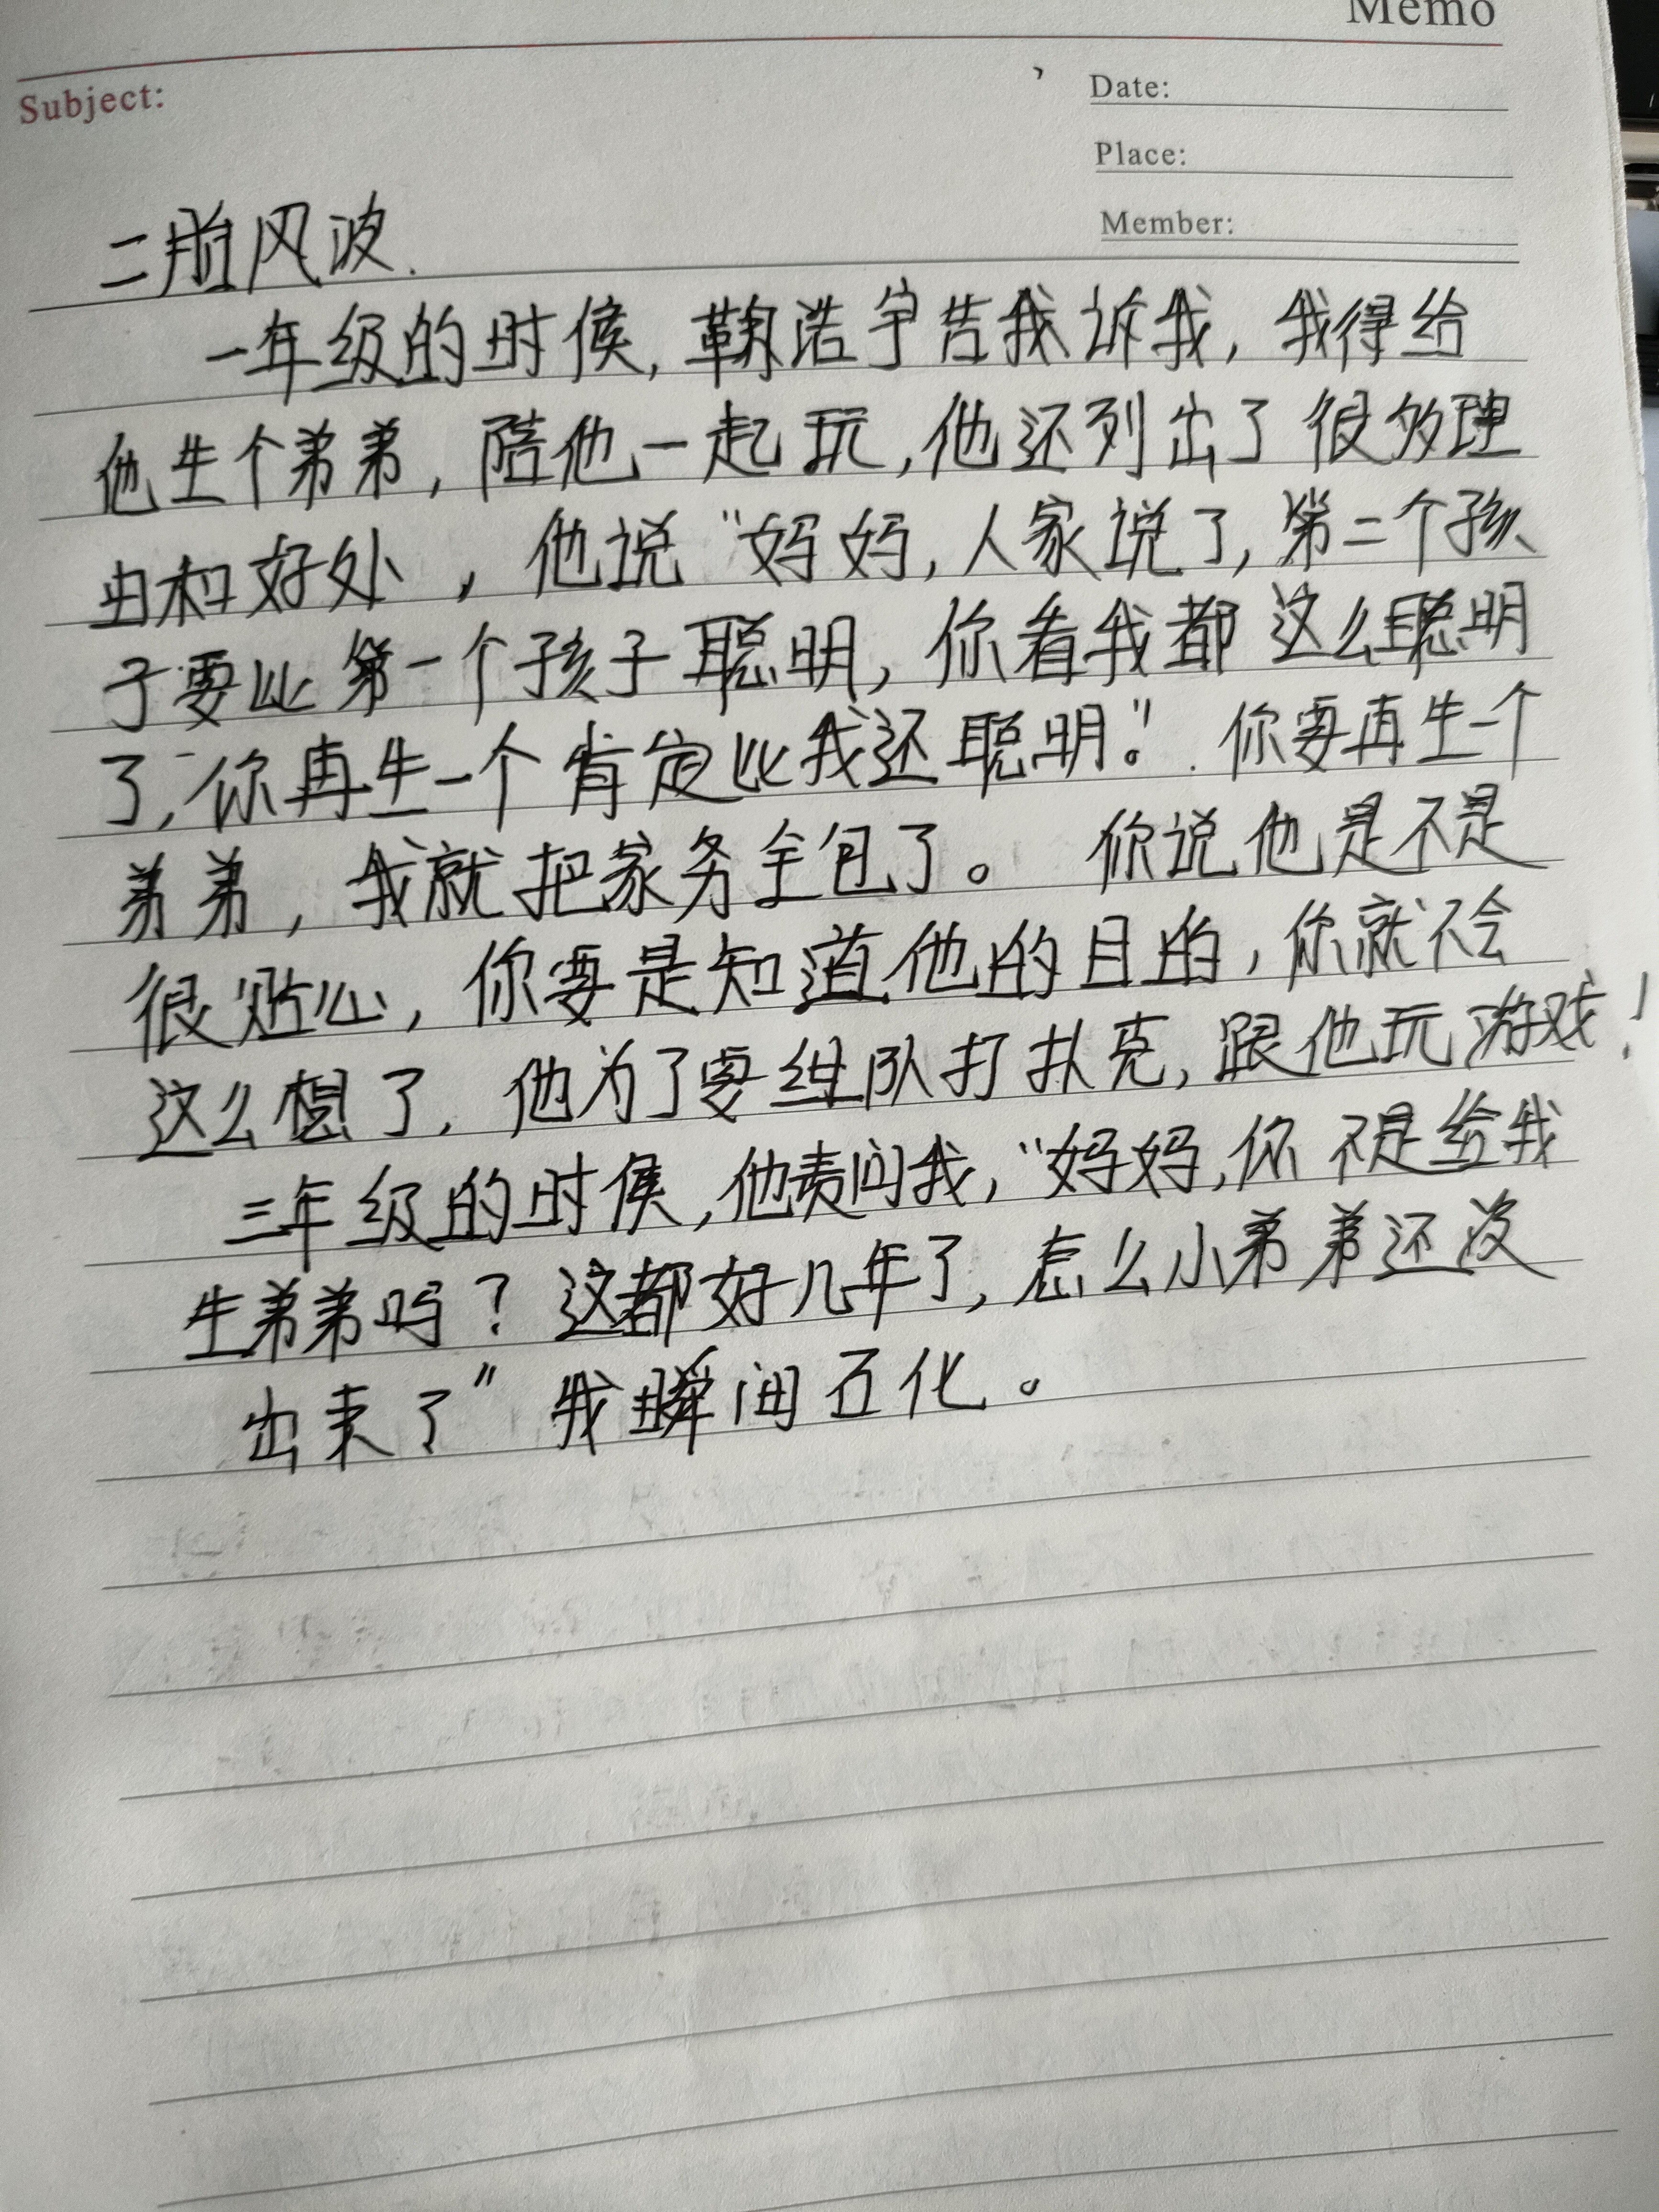 Memo
Subject:
Date:
Place:
Member:
二胎风波.
一年级的时候,鞠浩宇告我诉我,我得给
他生个弟弟,陪他一起玩,他还列出了很多理
由和好处,他说“妈妈,人家说了,第二个孩
子要比第一个孩子聪明,你看我都这么聪明
了,你再生一个肯定比我还聪明。”你要再生一个
弟弟,我就把家务全包了。你说他是不是
很贴心,你要是知道他的目的,你就不会
这么想了,他为了要组队打扑克,跟他玩游戏!
三年级的时候,他责问我,“妈妈,你不是给我
生弟弟吗?这都好几年了,怎么小弟弟还没
出来了”我瞬间石化。